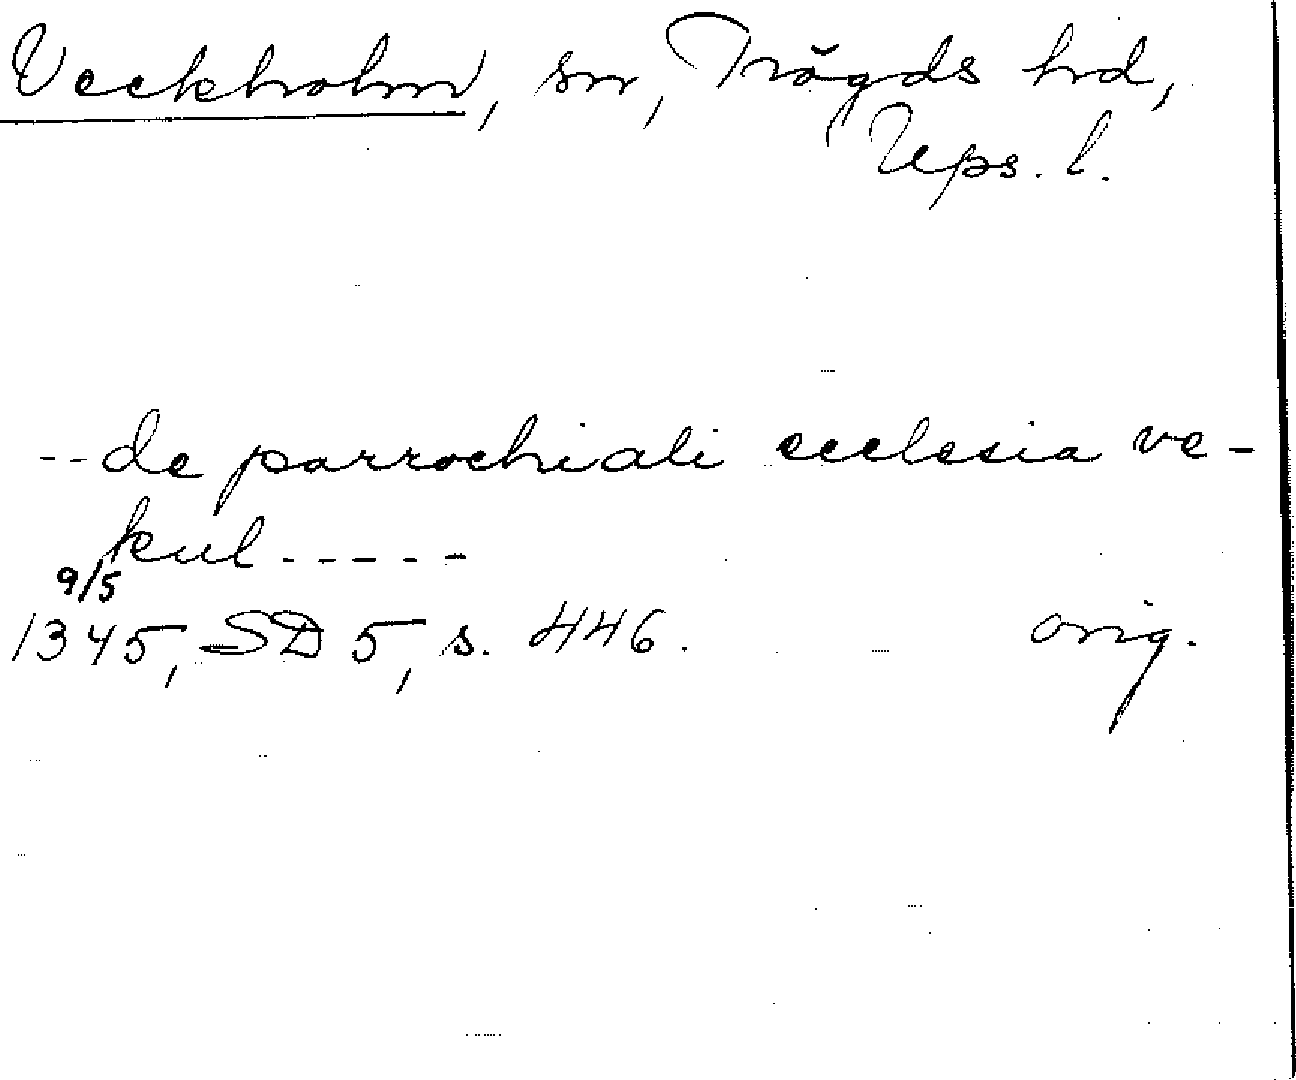 Veckholm, sn, Trögds hrd,
Ups. l.
-- de parrochiali ecclesia ve-
kul -----
9/5
1345, SD 5, s. 446. orig.